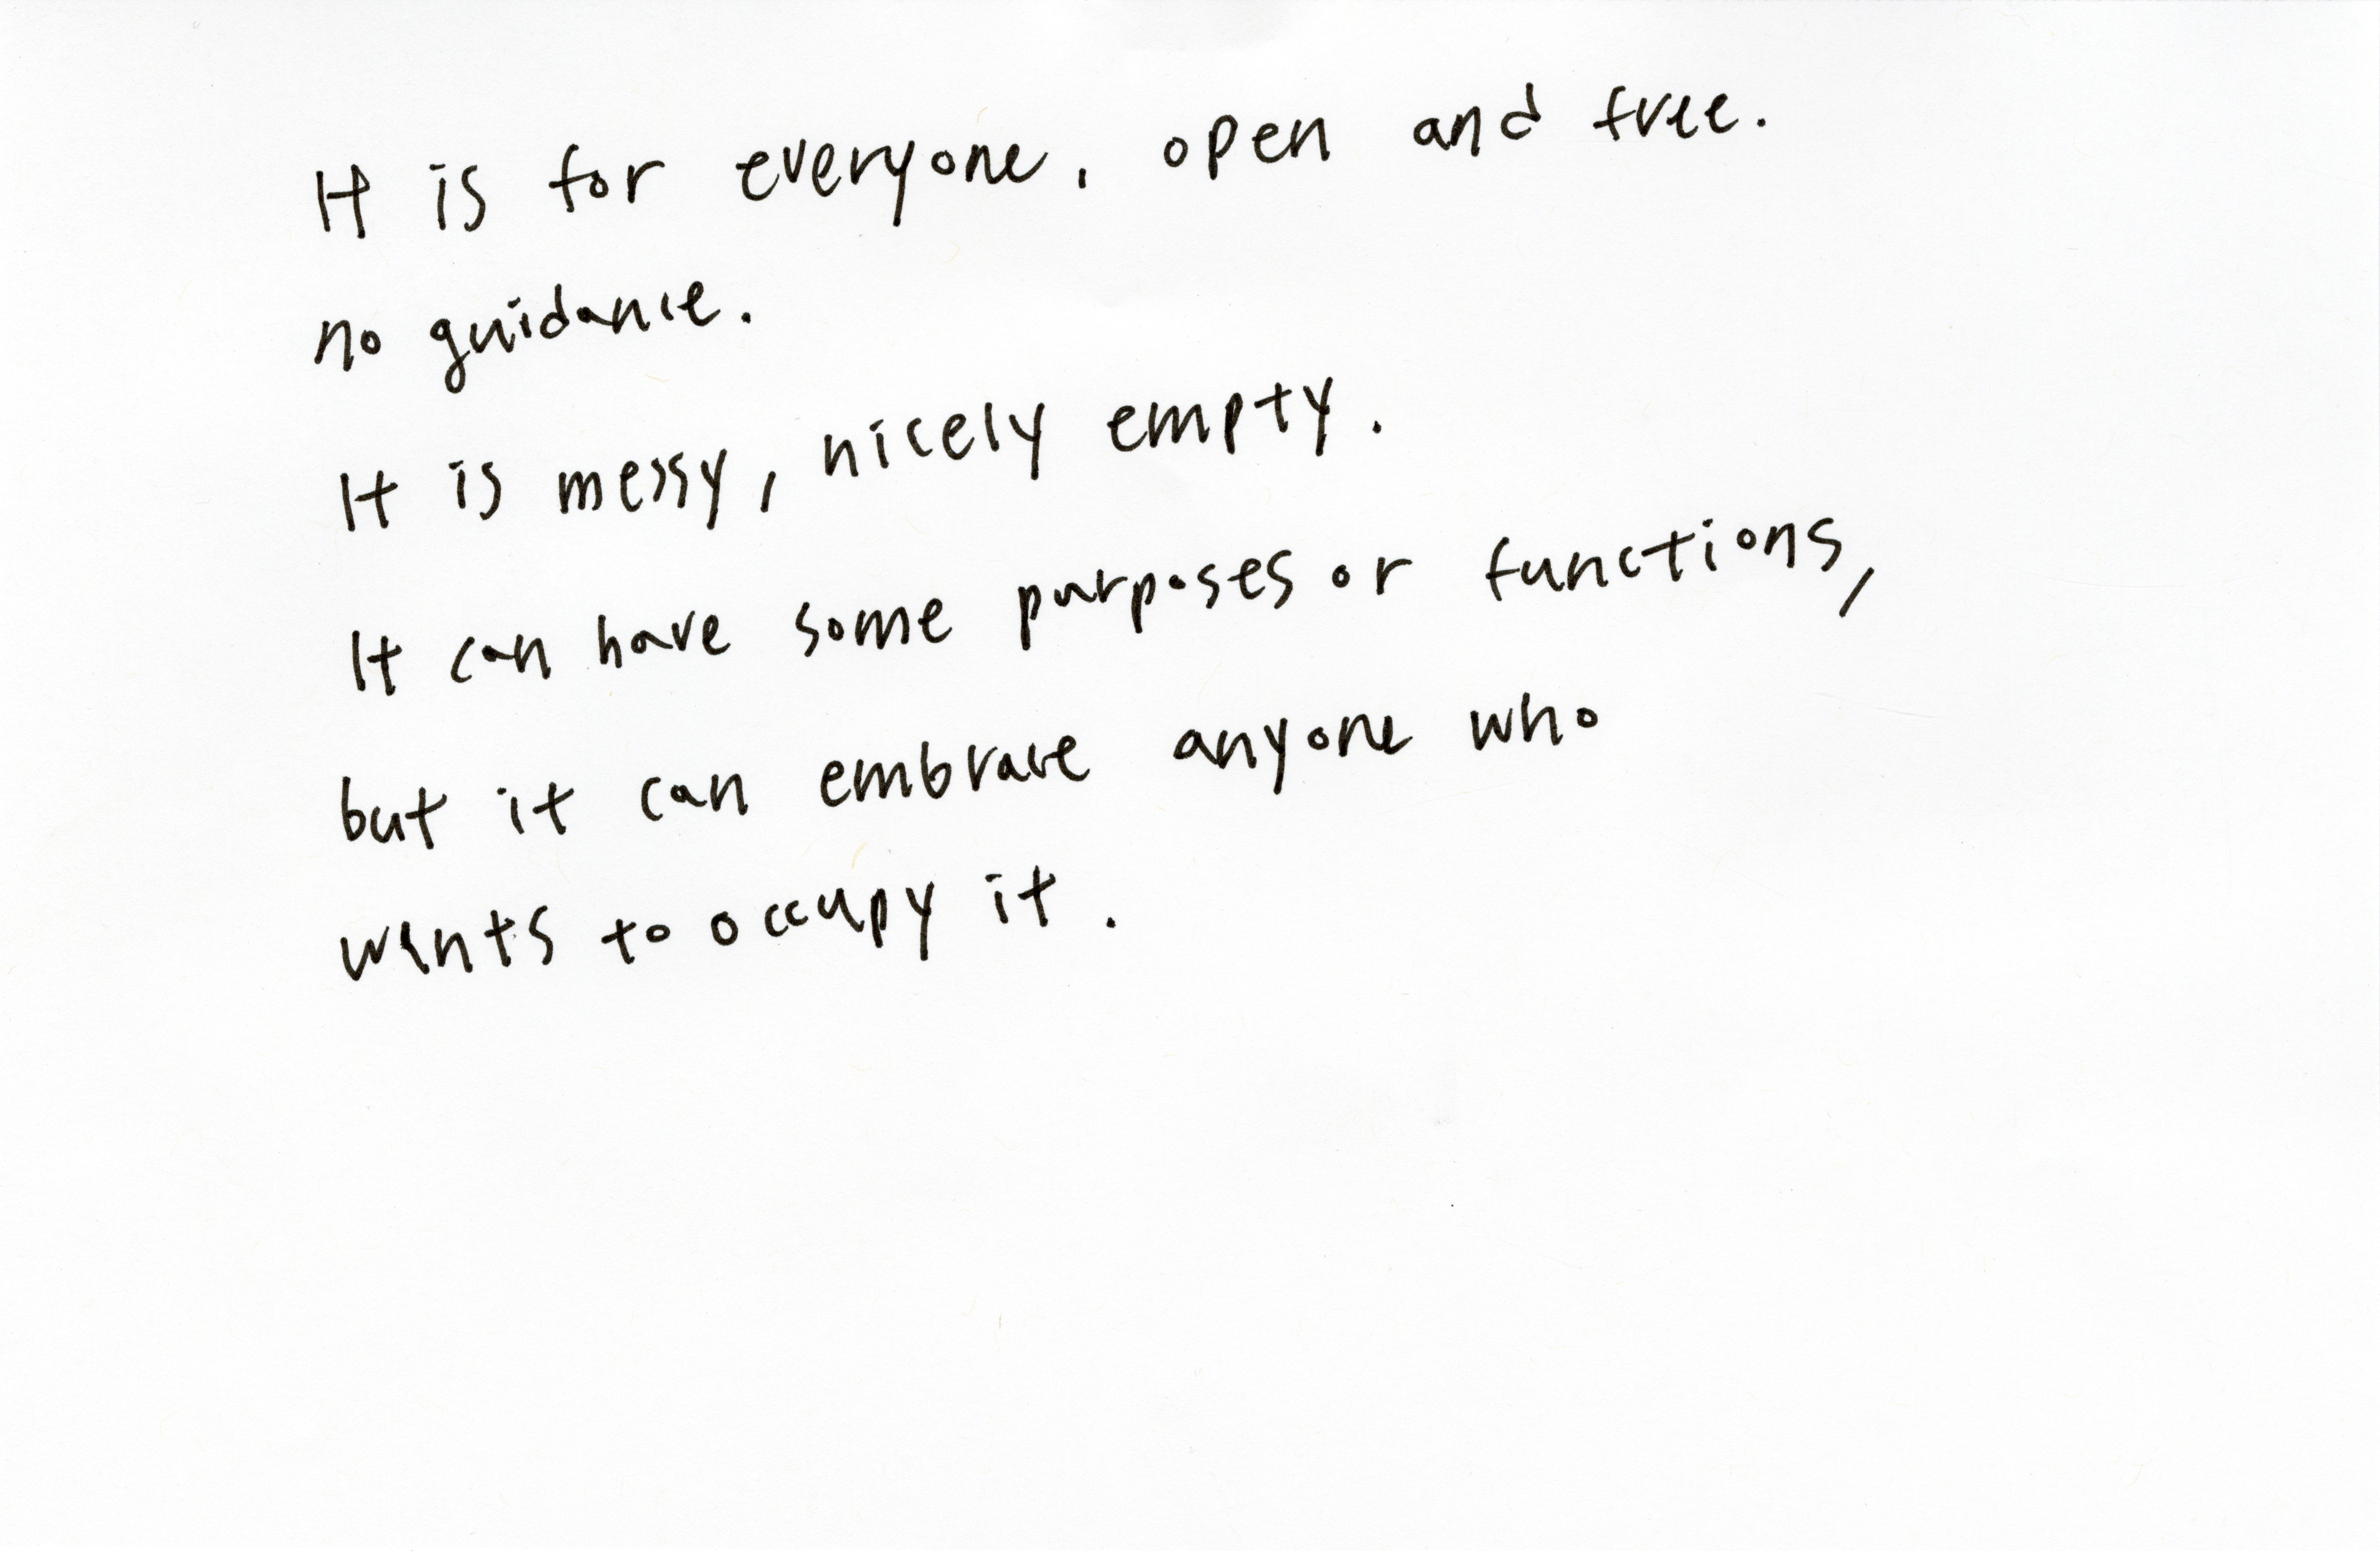 It is for everyone, open and free.
no guidance.
It is messy, nicely empty.
It can have some purposes or functions,
but it can embrace anyone who
wants to occupy it.